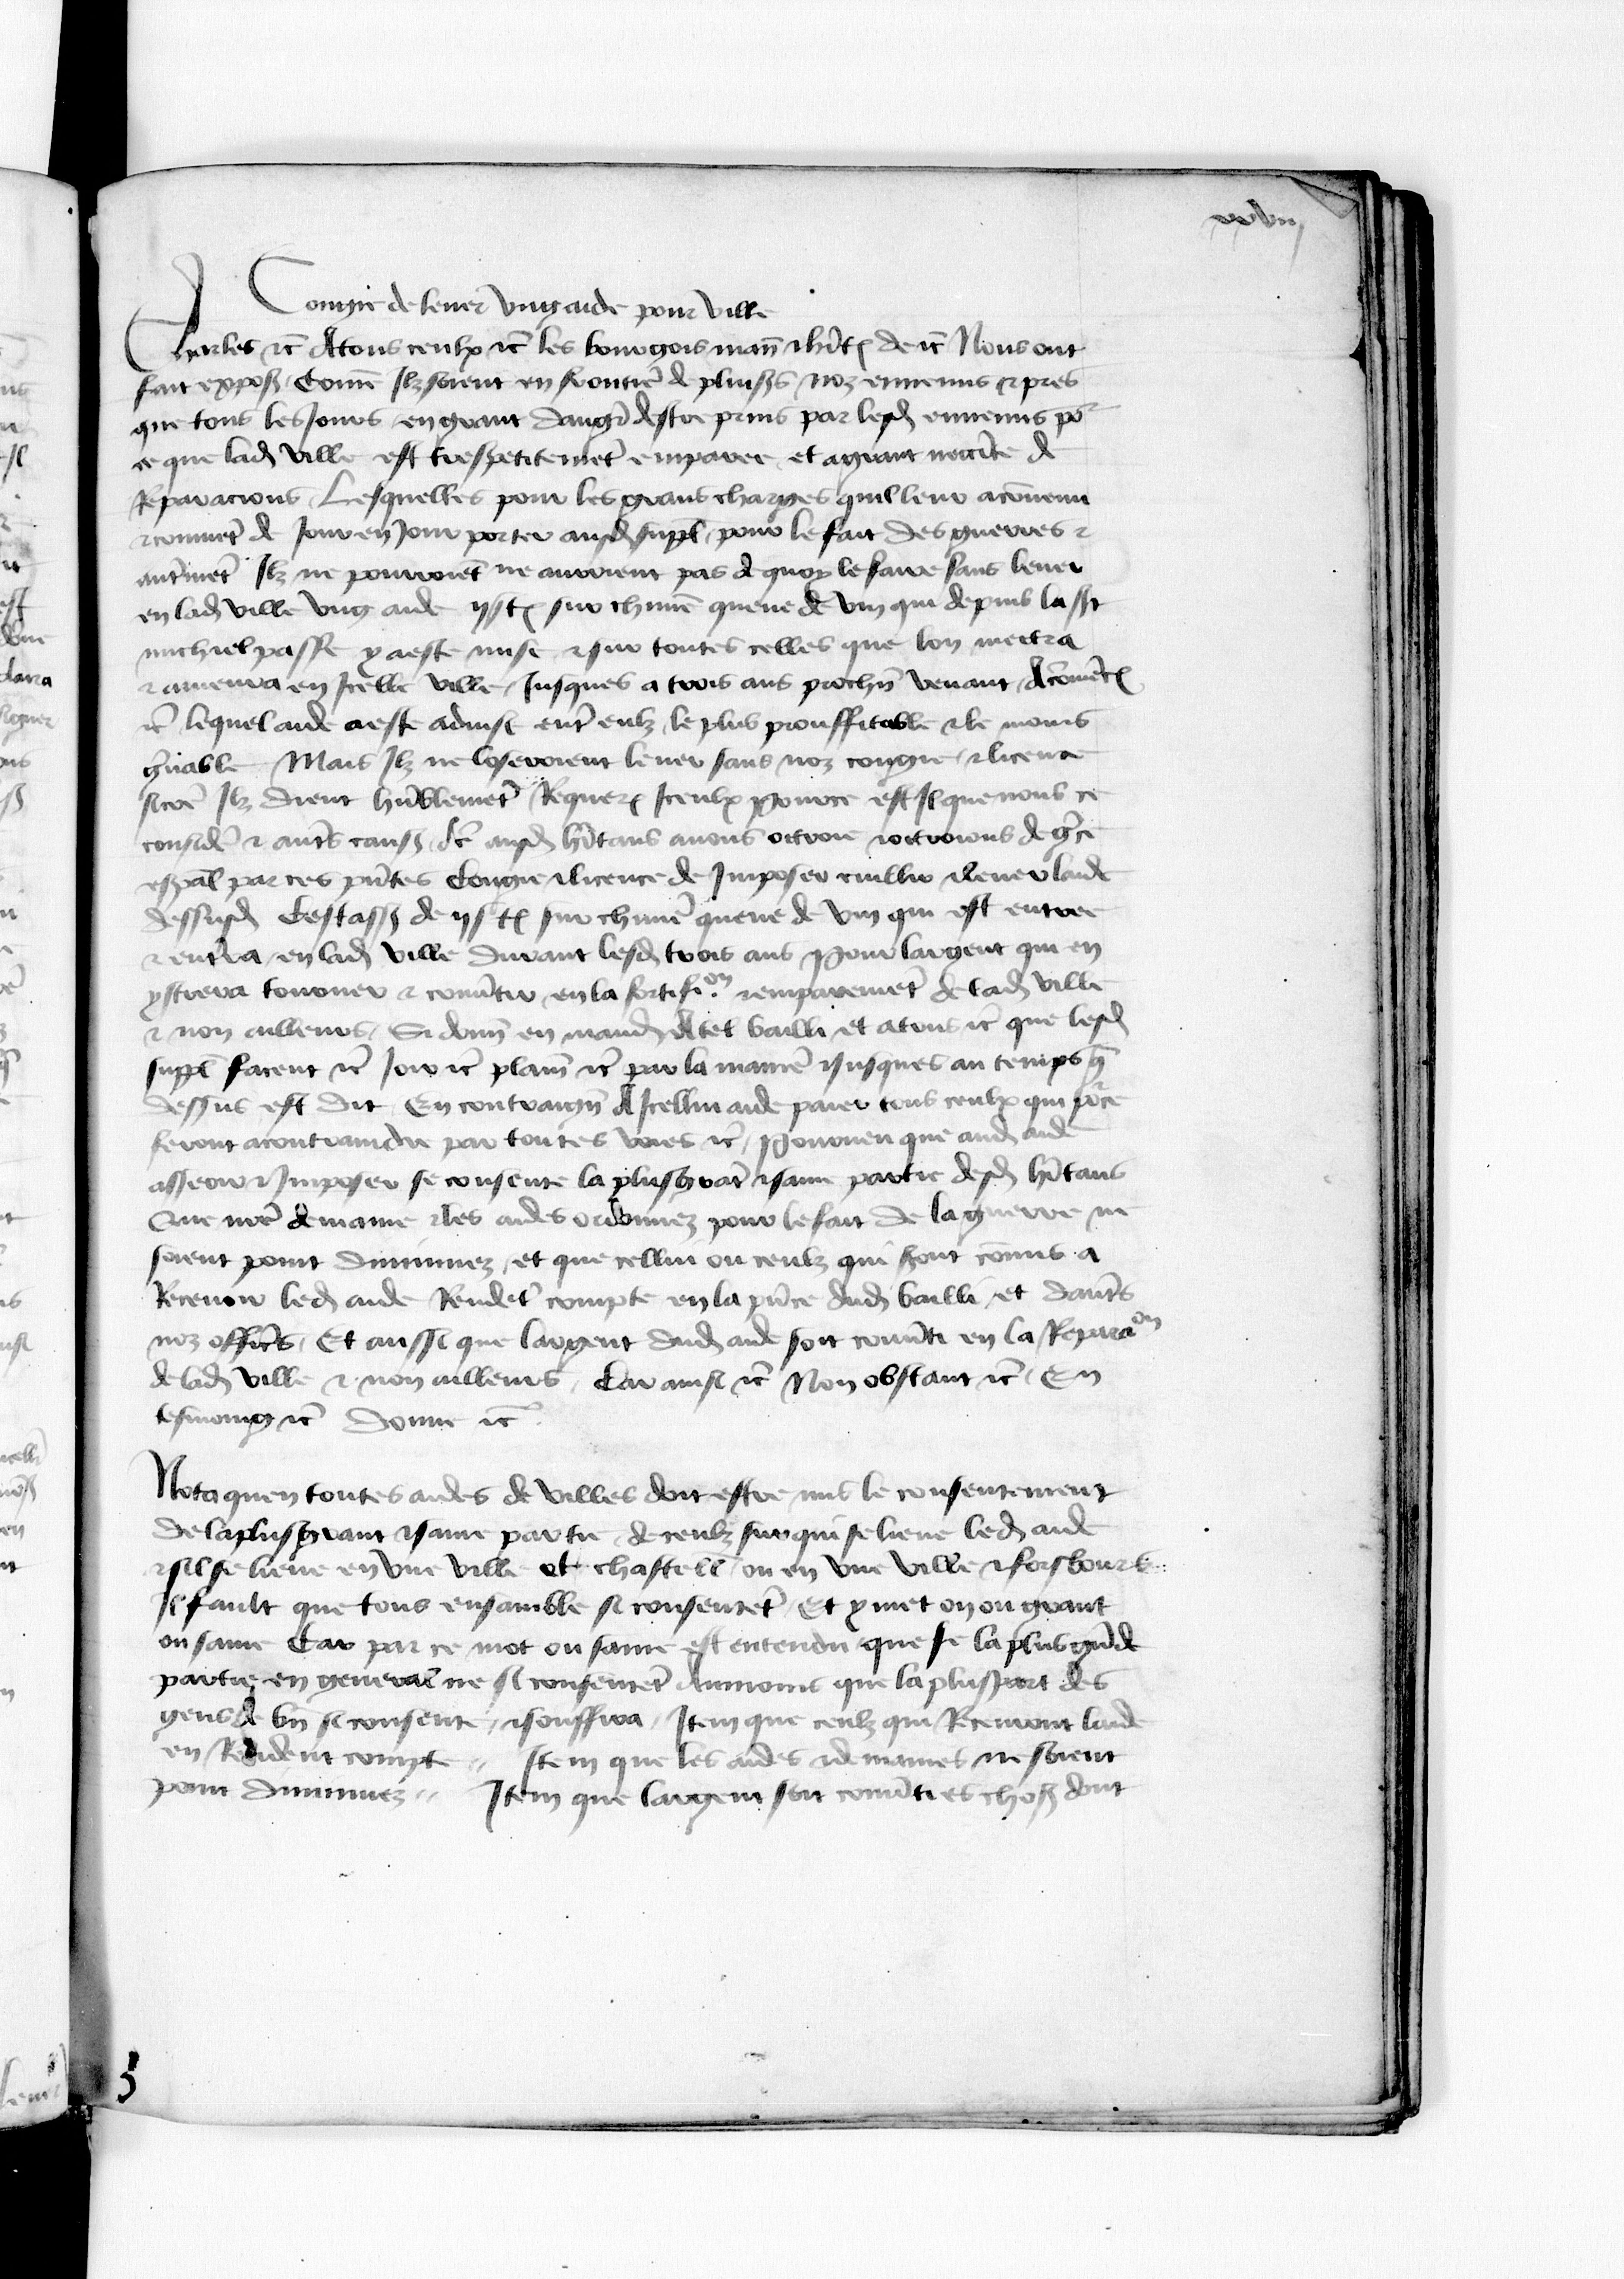 xxvii
Congie de lever ung aide pour ville
Charles etc Atous ceulx etc les bourgois mann et hītē de etc Nous ont
fait exposẽ Comẽ Ilz soient en frontiẽ de plusẽs noz ennemis et pres
que tous les jours en grant dangr̃ destre prins par lesd ennemis pōr
ce que lad ville est trespetitemẽt emparee et a grant neccīte de
Reparacions Lesquelles pour les grans charges quil leur a cōvenu
et convient de jour en jour porter ausd suppl pour le fait des guerres et
autr̃met Ilz ne pourroiẽt ne auroient pas de quoy le faire sans lever
en lad ville ung aide sur chūne queue de vin qui depuis la st
michiel passe y a este mise et sur toutes celles que lon mectra
et amenra en Icelle ville Jusques a trois ans prochn venant
etc lequel aide a este advise entr̃ eulx le plus prouffitable et le moins
gr̃vable Mais Ilz ne loseroient lever sans noz congie et licence
sicõe Ilz dient hūblemẽt Requerẽ Iceulx Pource est Il que nous ce
considẽ et autr̃s causẽ etc ausd hītans avons ottroie et ottroions de gr̃ce
espal par ces pñtes Congie et licence de Imposer cuillir et lever laide
dessusd Cestassẽ de sur chūne queue de vin qui est entree
et entr̃ra en lad ville durant lesd trois ans Pour largent qui en
ystrera tourner et convr̃tir en la fortifion et emparemẽt de lad ville
et non ailleurs Si donn en mand Atel bailli et a tous etc que lesd
suppl facent etc Joir etc plain etc par la maniẽ et jusques au temps q̃
dessus est dit En contraign A Icellui aide paier tous ceulx qui pōr ce
feront a contraindre par toutes voies etc Pourveu que aud aide
asseoir et Imposer se consente la plus grāt et saine partie desd hītans
Que nr̃e demaine et les aides ordonnez pour le fait de la guerre ne
soient point diminuez et que cellui ou ceulx qui sont cōmis a
Recevoir led aide Rendẽt compte en la pñce dud bailli et dautr̃s
noz officr̃s Et aussi que largent dud aide soit convr̃ti en la Reparaon
de lad ville et non ailleurs Car ainsi etc Non obstant etc En
tesmoing etc Donne etc

Nota quen toutes aides de villes doit estre mis le consentement
de la plus grant et saine partie de ceulx sur qui se lieve led aide
et sil se lieve en une ville et chastell ou en une ville et forsbours
Il fault que tous ensamble si consentẽt Et y met on ou grant
ou saine Car par ce mot ou saine est entendu que se la plus gr̃de
partie en general ne si consentẽt Aumoins que la plus part des
gens de bn si consente et souffira Item que ceulx qui Recevront laide
en Rendent compte Item que les aides et demaines ne soient
point diminuez Item que largent soit convr̃ti es chosẽ dont